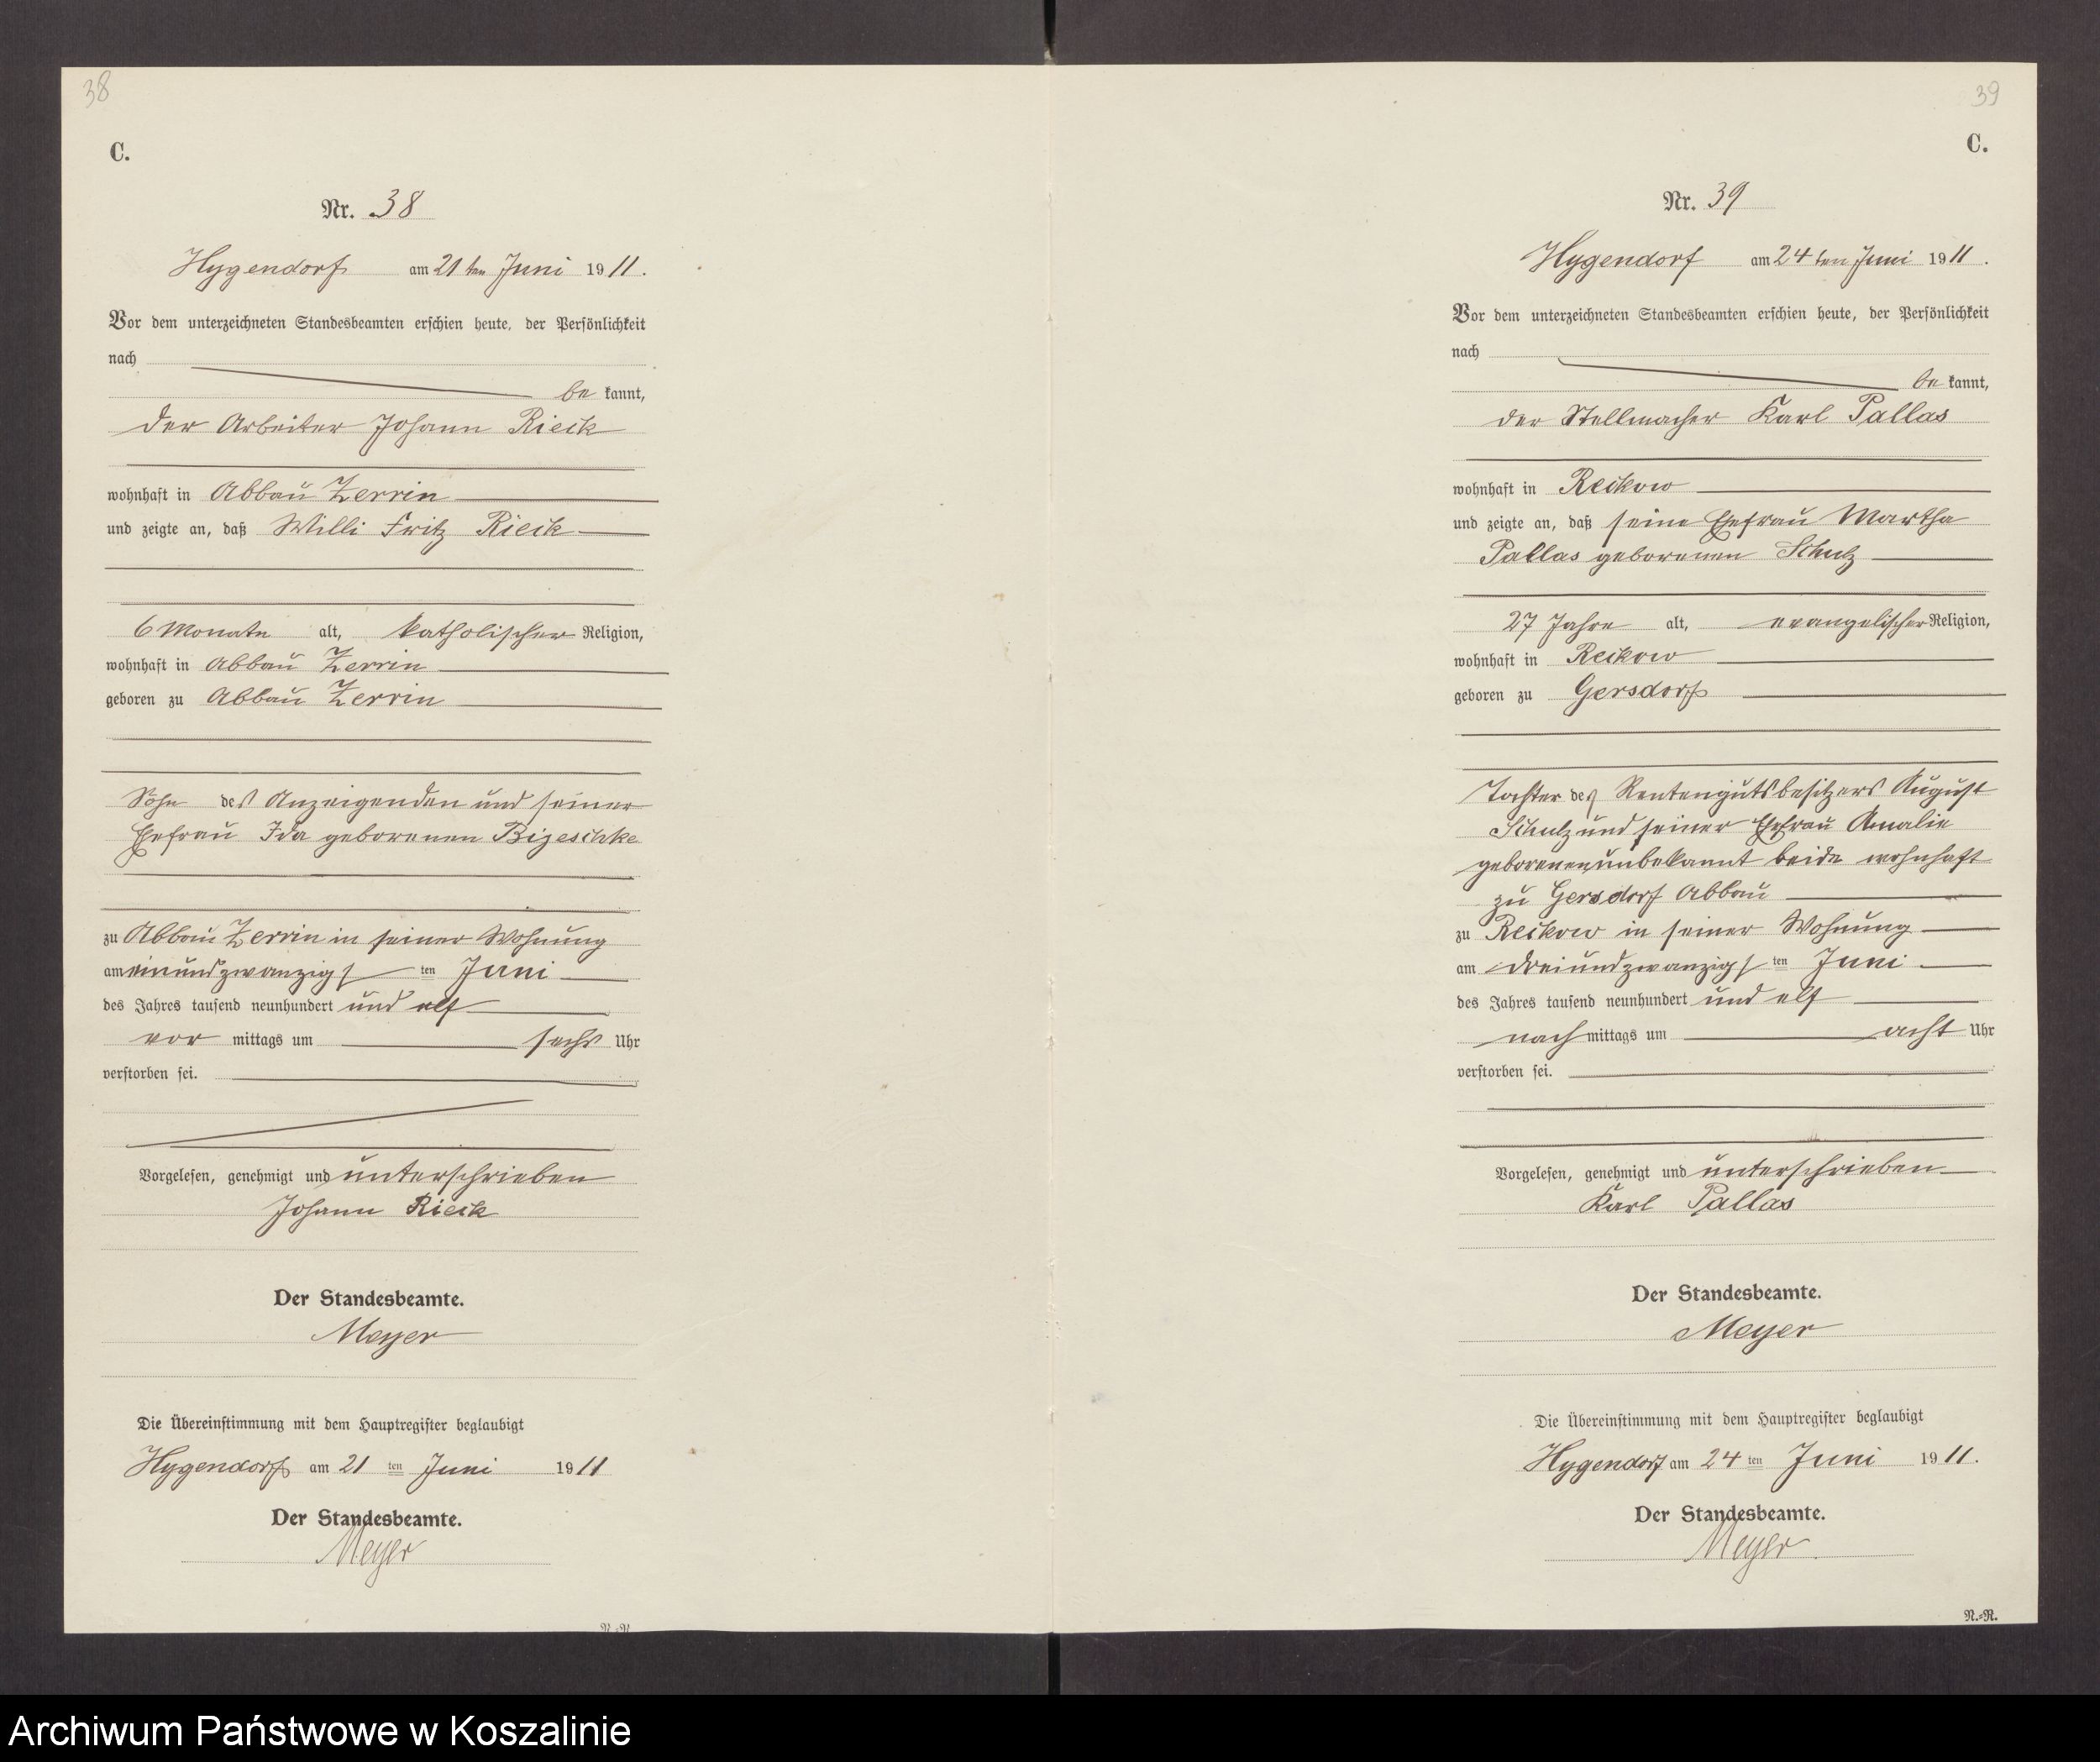 38
C.
Nr. 38
Hygendorf am 21 ten Juni 1911.
Vor dem unterzeichneten Standesbeamten erschien heute, der Persönlichkeit
nach
be kannt,
der Arbeiter Johann Rieck
wohnhaft in Abbau Zerrin
und zeigte an, daß Willi Fritz Rieck
6 Monate alt, katholischer Religion,
wohnhaft in Abbau Zerrin
geboren zu Abbau Zerrin
Sohn des Anzeigenden und seiner
Ehefrau Ida geborenen Bizeschke
zu Abbau Zerrin in seiner Wohnung
am einundzwanzigsten Juni
des Jahres tausend neunhundert und elf
vor mittags um sechs Uhr
verstorben sei.
Vorgelesen, genehmigt und unterschrieben
Johann Rieck
Der Standesbeamte.
Meyer
Die Übereinstimmung mit dem Hauptregister beglaubigt
Hygendorf am 21 ten Juni 1911
Der Standesbeamte.
Meyer
39
C.
Nr. 39
Hygendorf am 24 ten Juni 1911.
Vor dem unterzeichneten Standesbeamten erschien heute, der Persönlichkeit
nach
be kannt,
der Stellmacher Karl Pallas
wohnhaft in Reckow
und zeigte an, daß seine Ehefrau Martha
Pallas geborenen Schulz
27 Jahre alt, evangelischer Religion,
wohnhaft in Reckow
geboren zu Gersdorf
Tochter des Rentengutsbesitzers August
Schulz und seiner Ehefrau Amalie
geborenen, unbekannt beide wohnhaft
zu Gersdorf Abbau
zu Reckow in seiner Wohnung
am dreiundzwanzigsten Juni
des Jahres tausend neunhundert und elf
nach mittags um acht Uhr
verstorben sei.
Vorgelesen, genehmigt und unterschrieben
Karl Pallas
Der Standesbeamte.
Meyer
Die Übereinstimmung mit dem Hauptregister beglaubigt
Hygendorf am 24 ten Juni 1911.
Der Standesbeamte.
Meyer
N.-N.
Archiwum Państwowe w Koszalinie